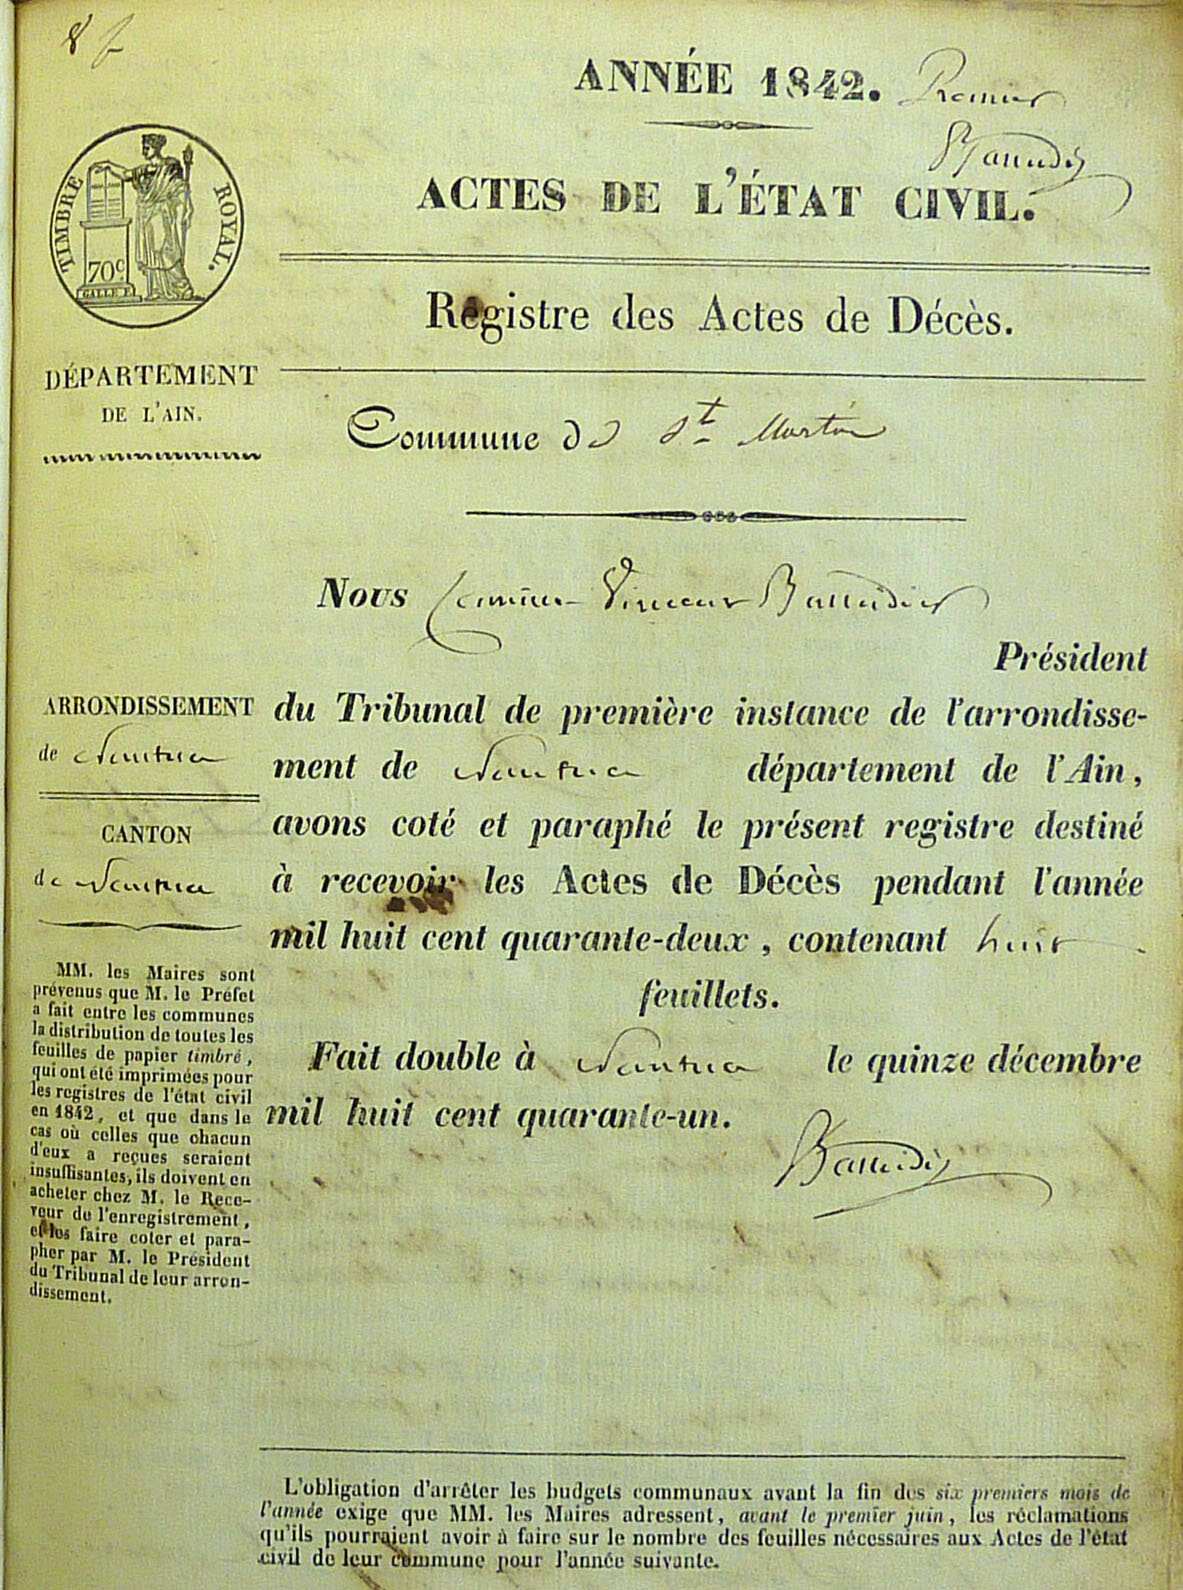 8 f
ANNÉE 1842. Premier
ACTES DE L'ÉTAT CIVIL.
TIMBRE ROYAL.
70 c
GALLE F.
Registre des Actes de Décès.
DÉPARTEMENT
DE L'AIN.
Commune de St Martin
Nous
Président
du Tribunal de première instance de l'arrondisse-
ment de Nantua département de l'Ain,
avons coté et paraphé le présent registre destiné
à recevoir les Actes de Décès pendant l'année
mil huit cent quarante-deux, contenant huit
feuillets.
Fait double à Nantua le quinze décembre
mil huit cent quarante-un.
ARRONDISSEMENT
de Nantua
CANTON
de Nantua
MM. les Maires sont
prévenus que M. le Préfet
a fait entre les communes
la distribution de toutes les
feuilles de papier timbré,
qui ont été imprimées pour
les registres de l'état civil
en 1842, et que dans le
cas où celles que chacun
d'eux a reçues seraient
insuffisantes, ils doivent en
acheter chez M. le Rece-
veur de l'enregistrement,
et les faire coter et para-
pher par M. le Président
du Tribunal de leur arron-
dissement.
L'obligation d'arrêter les budgets communaux avant la fin des six premiers mois de
l'année exige que MM. les Maires adressent, avant le premier juin, les réclamations
qu'ils pourraient avoir à faire sur le nombre des feuilles nécessaires aux Actes de l'état
civil de leur commune pour l'année suivante.